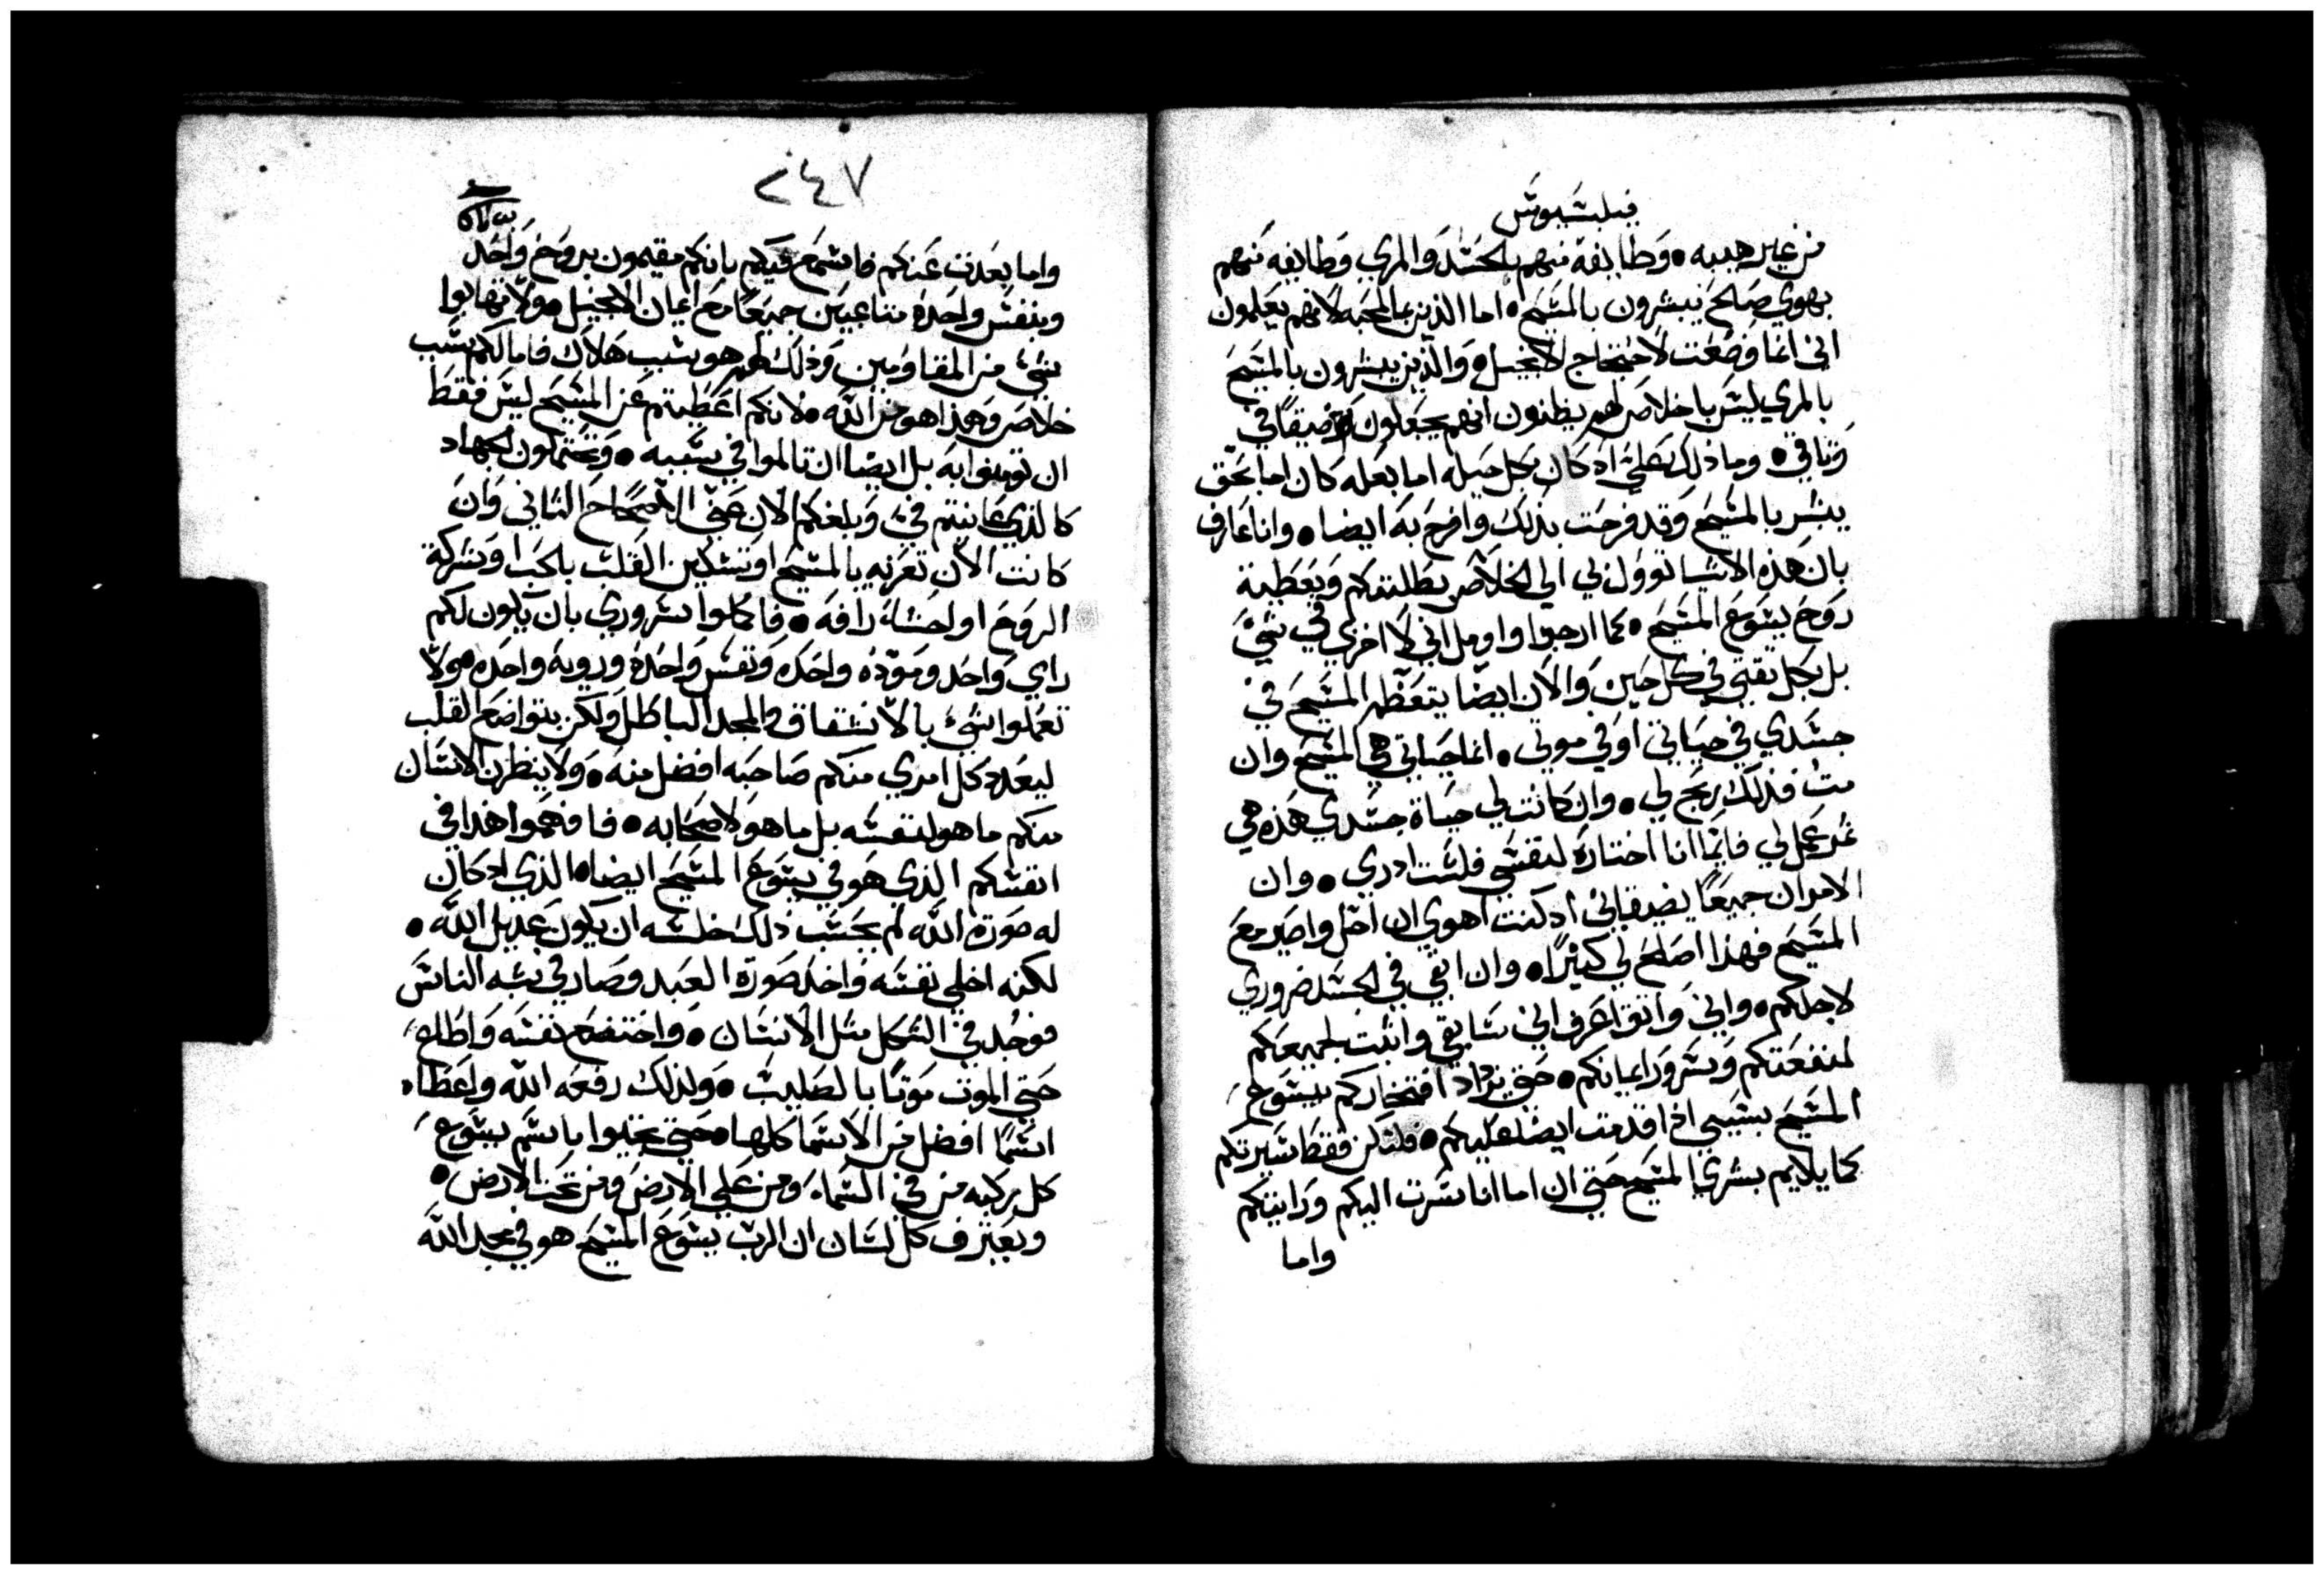 فيلبسيوس
من غير هيبه ٠ وطايفة منهم بالحسد والمري وطايفه منهم
بهوي صالح يبشرون بالمسيح ٠ اما الذين بالمحبه لانهم يعلمون
اني انما وضعت لاحتجاج الانجيل ٠ والذين يبشرون بالمسيح
بالمري ليس باخلاص بل يظنون انهم يجعلون ضيقا في
وثاقي ٠ وما ذلك علي اذ كان بكل حيله اما بعله كان اما بحق
يبشر بالمسيح وقد فرحت بذلك وافرح به ايضا ٠ وانا عارف
بان هذه الاشيا توول لي الي الخلاص بطلبتكم وبعطية
روح يسوع المسيح ٠ كما ارجوا واومل اني لا اخزي في شيء
بل بكل ثقتي في كل حين والان ايضا يتعظم المسيح في
جسدي في حياتي او في موتي ٠ انما حياتي هي المسيح وان
مت فذلك ربح لي ٠ وان كانت لي حياة جسدي هذه هي
ثمر عمل لي فايما انا اختاره لنفسي فلست ادري ٠ وان
الامران جميعا يضيقاني اذ كنت اهوي ان احل واصير مع
المسيح فهذا اصلح لي كثيرا ٠ وان ابقي في الجسد ضروري
لاجلكم ٠ واني واثق اعرف اني سابقي واثبت لجميعكم
لمنفعتكم وسرور ايمانكم ٠ حتي يزداد افتخاركم بيسوع
المسيح بسببي اذا قدمت ايضا عليكم ٠ ولتكن فقط سيرتكم
كما يلايم بشري المسيح حتي ان اما انا سرت اليكم ورايتكم
واما
٢٤٧
واما بعدت عنكم فاسمع فيكم بانكم مقيمون بروح واحد
وبنفس واحدة متناعيين جميعا مع ايمان الانجيل ٠ ولا تهابوا
شيء من المقاومين وذلك لهم هو سبب هلاك فاما لكم سبب
خلاص وهذا هو من الله ٠ لانكم اعطيتم عن المسيح ليس فقط
ان تومنوا به بل ايضا ان تالموا في سببه ٠ وتحتملون الجهاد
كالذي عاينتم في وبلغكم الان عني الاصحاح الثاني وان
كانت الان تعزيه بالمسيح او تسكين القلب بالحب او شركة
الروح او احشاء رافه ٠ فاكملوا سروري بان يكون لكم
راي واحد ومودة واحده ونفس واحدة وروية واحده ٠ ولا
تعملوا شيء بالانشقاق والمجد الباطل ولكن بتواضع القلب
ليعدد كل امري منكم صاحبه افضل منه ٠ ولا ينظرن الانسان
منكم ما هو لنفسه بل ما هو لاصحابه ٠ فافهموا هذا في
انفسكم الذي هو في يسوع المسيح ايضا ٠ الذي اذ كان
له صورة الله لم يحسب ذلك خلسه ان يكون عديل الله ٠
لكنه اخلي نفسه واخذ صورة العبد وصار في شبه الناس
فوجد في الشكل مثل الانسان ٠ واختضع نفسه واطاع
حتي الموت موتا بالصليب ٠ ولذلك رفعه الله واعطاه
اسما افضل من الاسما كلها ٠ حتي تجثوا باسم يسوع
كل ركبه من في السماء ومن علي الارض ومن تحت الارض ٠
ويعترف كل لسان ان الرب يسوع المسيح هو في مجد الله